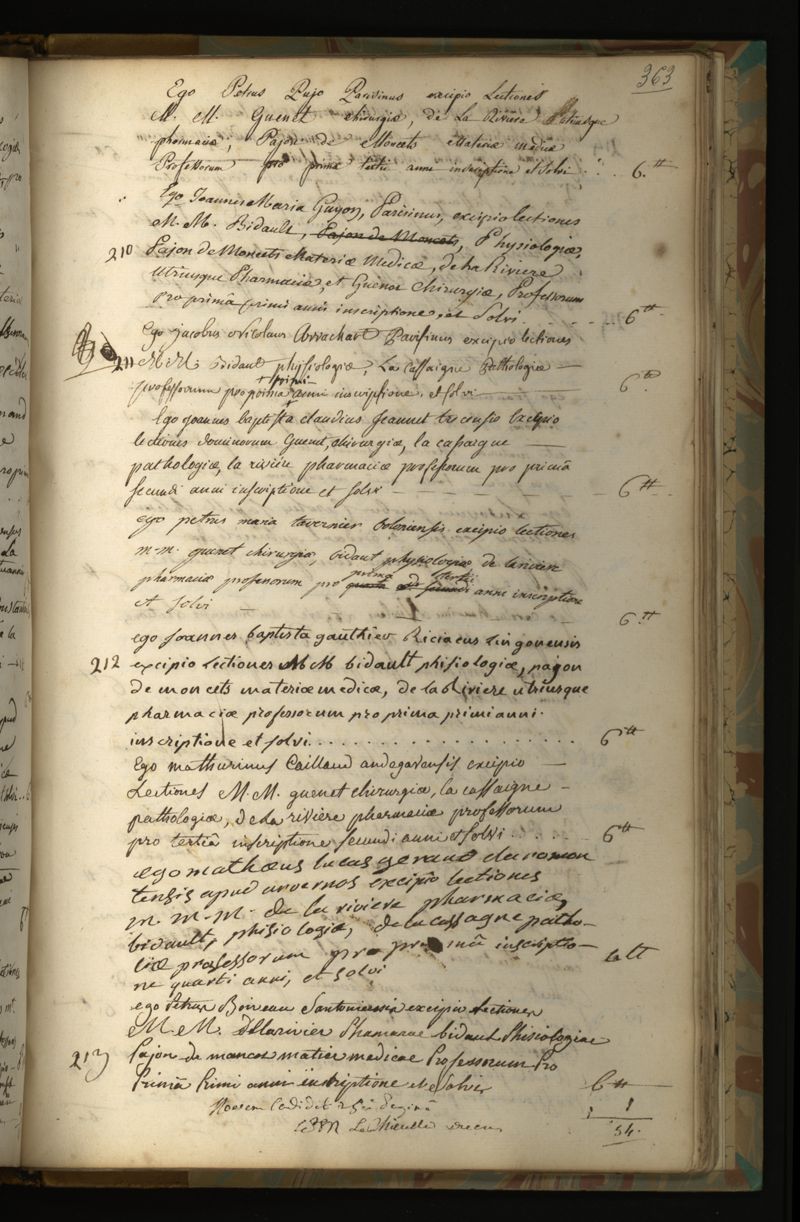 363
Ego Petrus Pujo Parisinus excipio Lectiones
M. M. Guenet chirurgiæ, de La Riviere utriusque
pharmaciæ, Pajon de Moncets Materiæ medicæ
Professorum pro prima anni inscriptione et solvi . . . . 6.tt
Ego Joannes Maria Guyon, Parisinus, excipio lectiones
M. M. Bidault, Pajon de Moncets, Physiologiæ,
210 Pajon de Moncets Materiæ Medicæ, de La Riviere
Utriusque Pharmaciæ, et Guenet Chirurgiæ, Professorum
Pro primâ primi anni inscriptione, et Solvi . . . . . 6tt
Ego Jacobus Nicolaus Arrachart Parisinus excipio lectiones
211 M. M. Bidault physiologiæ, La Cassaigne Pathologiæ —
professorum pro prima primi anni inscriptione, et solvi — 6tt
Ego Joannes baptista claudius Jeannet trecensis excipio
lectiones dominorum Guenet, chirurgiæ, la cassaigne —
pathologiæ, la riviére pharmaciæ professorum pro primâ
secundi anni inscriptione et solvi — — — — — 6tt
ego petrus maria tavernier boloniensis excipio lectiones
m-m. guenet chirurgiæ, bidaut physiologiæ de lariviere
pharmaciæ professorum pro prima tertii anni inscriptione
et solvi — 6tt
ego Joannes baptista gauthier Riciacus Lingonensis
212 excipio Lectiones M M bidault phisiologiæ, pajon
de moncets materiæ medicæ, de la Riviere utriusque
pharmaciæ professorum pro prima primi anni.
inscriptione et solvi . . . . . . . . . . 6tt
Ego mathurinus Caillaud andegavensis excipio —
Lectiones M. M. guenet chirurgiæ, la cassaigne —
pathologiæ, de La riviere pharmaciæ professorum
pro tertiâ inscriptione secundi anni et solvi . . . . . 6tt
ego mathæus lucas geraud claromon
tensis apud arvernos excipio lectiones
m. m. m. de la riviere pharmaciæ,
bidault, phisiologiæ, de la cassagne patho-
liæ professorum pro primâ inscriptio-
ne quarti anni, et solvi 6tt
ego Petrus Boireau Santoniensis excipio Lectiones
M. M. Delarivier Phamaciæ bidaut Phisiologiae
213 Pajon de mancet matier medicae Professorum Pro
Primâ Primi anni inscriptione et Solvi 6tt
1
54.